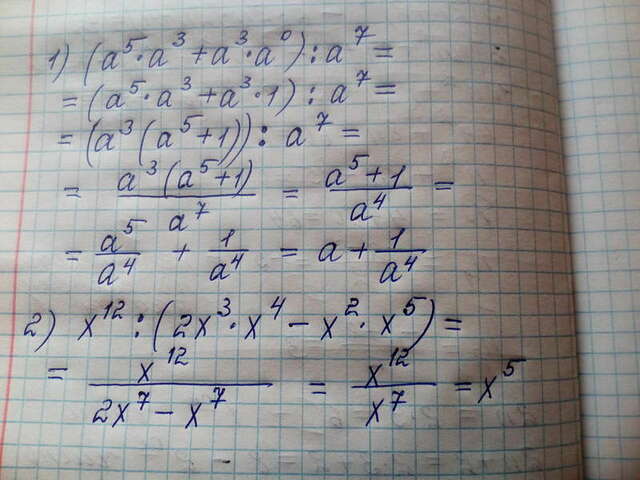 1) (a⁵·a³+a³·a⁰):a⁷=
=(a⁵·a³+a³·1):a⁷=
=(a³(a⁵+1)):a⁷=
= a³(a⁵+1)/a⁷ = a⁵+1/a⁴ =
= a⁵/a⁴ + 1/a⁴ = a+1/a⁴
2) x¹²:(2x³·x⁴-x²·x⁵)=
= x¹²/2x⁷-x⁷ = x¹²/x⁷ =x⁵